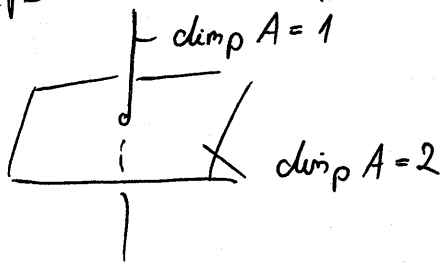 dim_p A = 1
dim_p A = 2